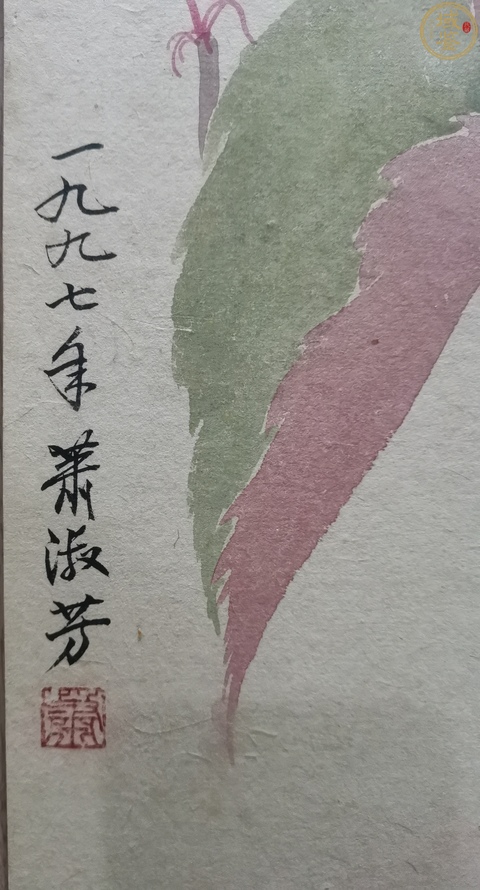 一九九七年 萧淑芳